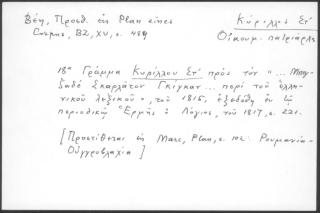 Βέη, Προσθ. εἰς Plan eines
Corpus, BZ, XV, σ. 484
Κύριλλος Στ'
Οἰκουμ. πατριάρχης
18η Γράμμα Κυρίλλου Στ' πρὸς τὸν "...
Σκαρλάτον Γκίγκαν ... περὶ τοῦ ἑλλη-
νικοῦ λεξικοῦ", τοῦ 1815, ἐξεδόθη ἐν τῷ
περιοδικῷ Ἑρμῆς ὁ Λόγιος, τοῦ 1817, σ. 221.
[Προστίθεται εἰς Marc, Plan, σ. 102: Ρουμανία-
Οὑγγροβλαχία]